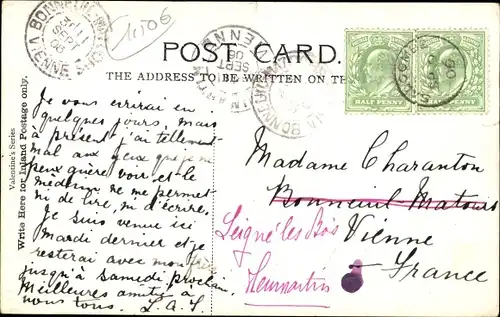 11506
BONNEUIL-MATOURS
VIENNE
SEPT
06
POST CARD.
THE ADDRESS TO BE WRITTEN ON TH
HALF PENNY
HALF PENNY
Valentine's Series
Write Here for Inland Postage only.
Je vous écrirai en
quelques jours, mais
à présent j'ai tellement
mal aux yeux que je ne
peux guère voir et le
medecin ne me permet
ni de lire, ni d'écrire.
Je suis venue ici
Mardi dernier et je
resterai avec mon frère
jusqu'à Samedi prochain
Meilleures amitiés à
vous tous. L.A.F.
Madame Charanton
Bonneuil Matours
Leigné les Bois
Vienne
Heumartin
France